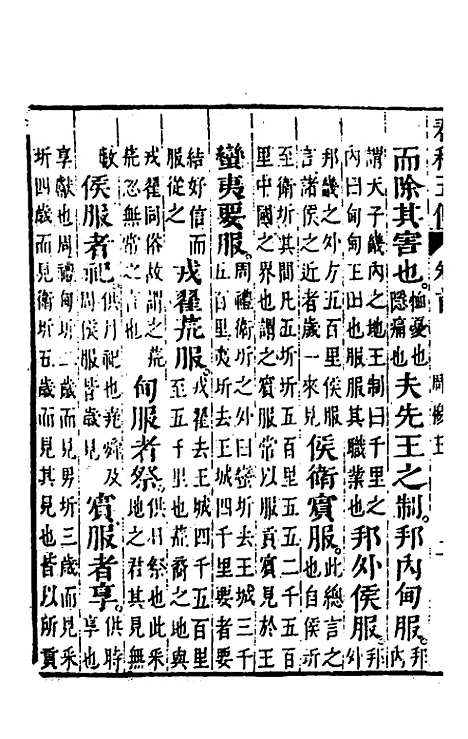 而除其害也。恤憂也隱痛也夫先王之制邦内甸服。邦内
謂天子畿内之地王制曰千里之内曰甸甸王田也服服其職業也邦外侯服。邦外
邦畿之外方五百里侯服言諸侯之近者歲一來見侯衛賓服。此總言之也自侯圻
至衛圻其間凡五圻圻五百里五五二千五百里中國之界也謂之賓服常以服貢賓見於王
蠻夷要服。周禮衛圻之外曰蠻圻去王城三千五百里夷圻去王城四千里要者要
結好信而服從之戎翟荒服。戎翟去王城四千五百里至五千里也荒裔之地與
戎翟同俗故謂之荒荒忽無常之言也甸服者祭。供日祭也此采地之君其見無
數侯服者祀。供月祀也堯舜及周侯服皆歲見賓服者享。供時享也
享獻也周禮甸圻二歲而見男圻三歲而見采圻四歲而見衛圻五歲而見其見也皆以所貢